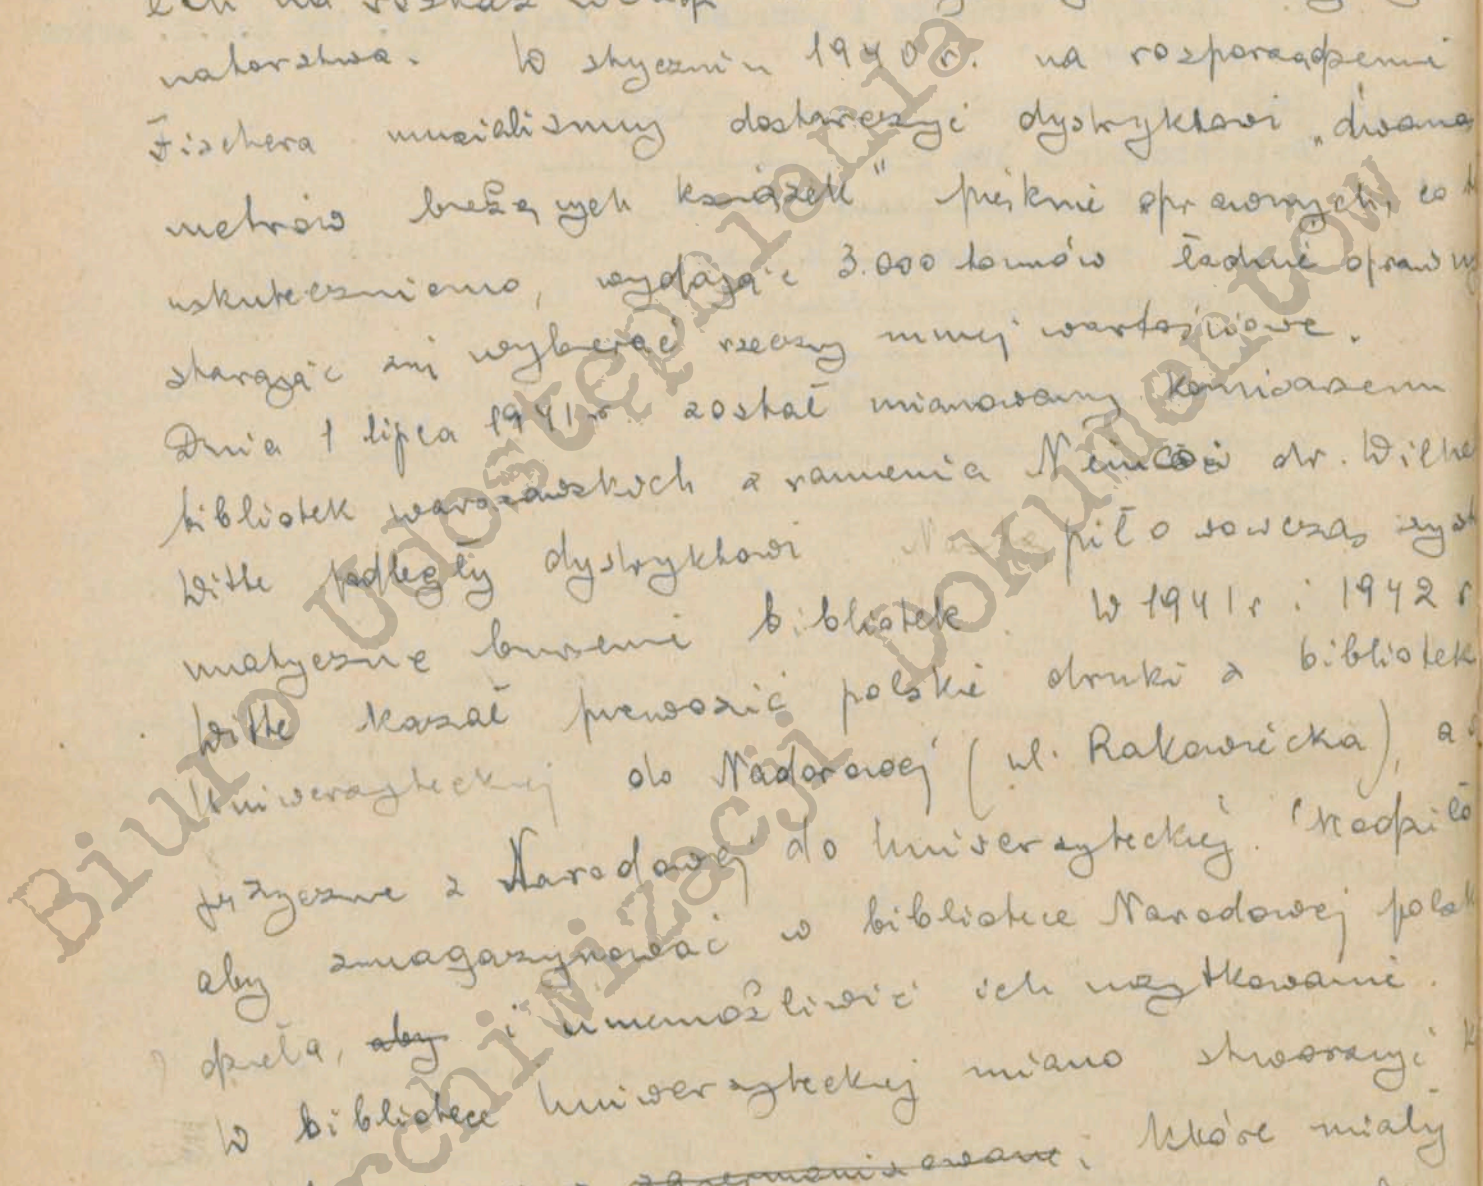 natorstwa. W styczniu 1940 r. na rozporządzenie
Fischera musieliśmy dostarczyć dystryktowi „dwana
metrów bieżących książek" pięknie oprawnych, co
uskuteczniono, wydając 3.000 tomów ładnie oprawny
starając się wybierać rzeczy mniej wartościowe.
Dnia 1 lipca 1941 r. został mianowany komisarzem
bibliotek warszawskich z ramienia Niemców dr. Wilhe
Witte podległy dystryktowi Nastąpiło wówczas syst
matyczne burzenie bibliotek. W 1941 r i 1942 r
Witte kazał przewozić polskie druki z bibliotek
Uniwersyteckiej do Narodowej (ul. Rakowiecka), a
z Narodowej do Uniwersyteckiej. Chodziło
aby zmagazynować w bibliotece Narodowej polsk
dzieła, aby i unemożliwić ich użytkowanie.
W bibliotece Uniwersyteckiej miano stworzyć k
zgermanizowane, które miały
Biuro Udostępniania
rchiwizacji Dokumentów